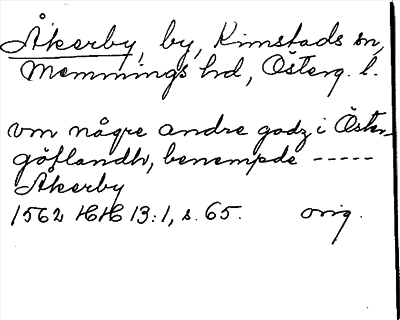 Åkerby, by, Kimstads sn,
Memmings hd, Österg. l.
vm någre andre godz i Öster-
götlandh, benempde -----
Åkerby
1562 HH 13:1, s. 65. orig.